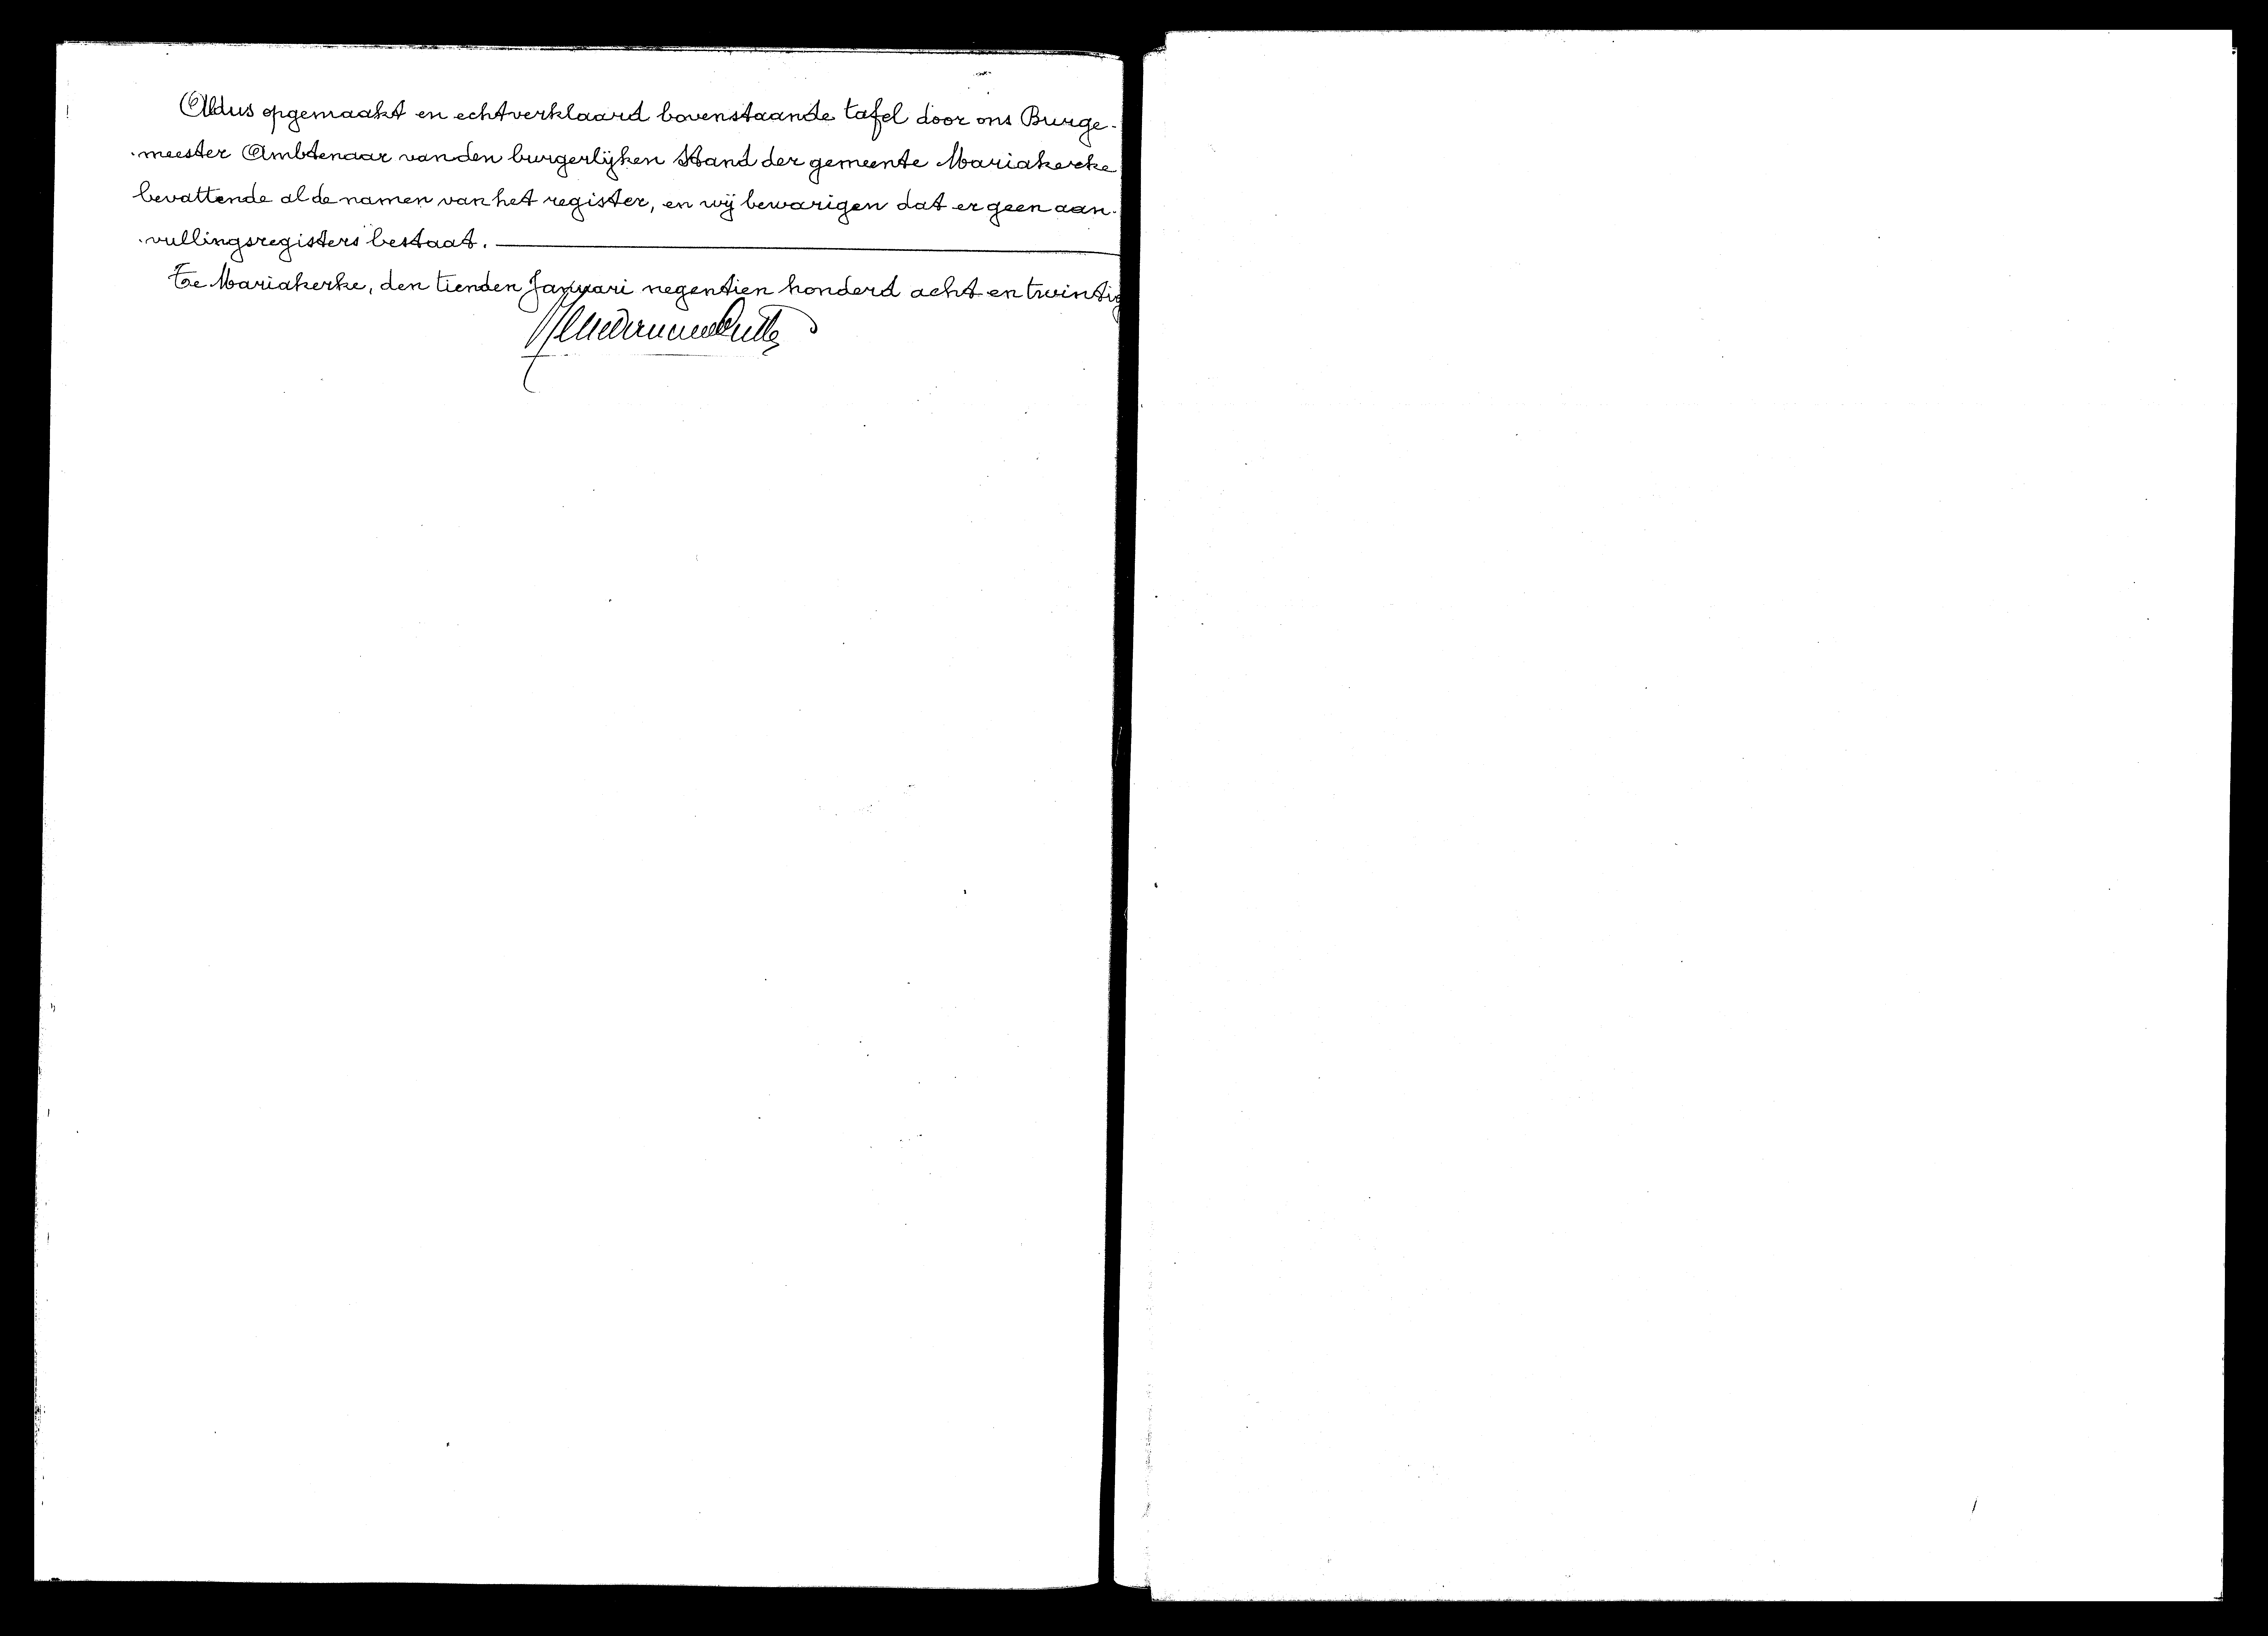 Aldus opgemaakt en echtverklaard bovenstaande tafel door ons Burge-
meester Ambtenaar van den burgerlijken Stand der gemeente Mariakerke
bevattende al de namen van het register, en wij bewarigen dat er geen aan-
vullingsregisters bestaat.
Te Mariakerke, den tienden Januari negentien honderd acht en twintig